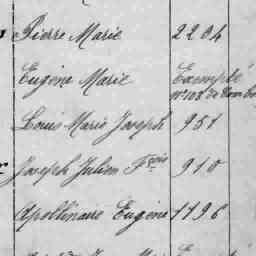 Pierre Marie 2204
Eugène Marie Exempté
Louis Marie Joseph 951
Joseph Julien Fçois 910
Apollinaire Eugène 1196